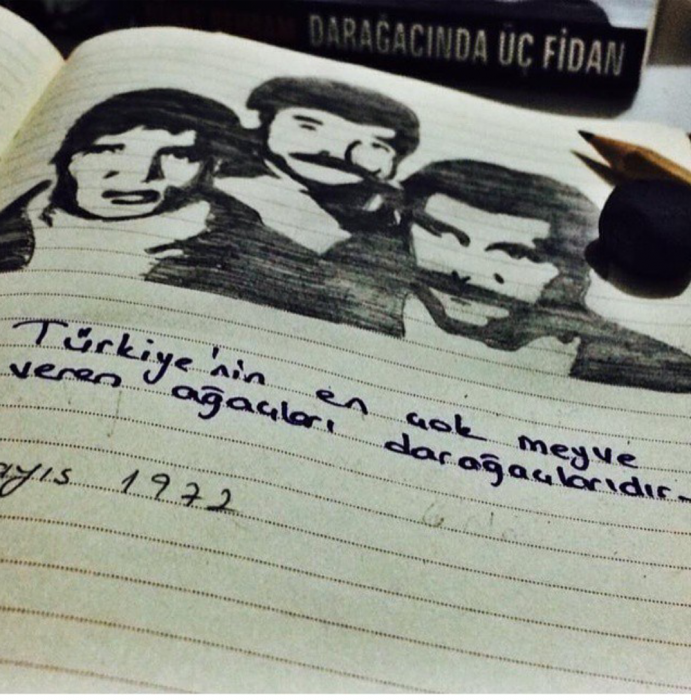 DARAĞACINDA ÜÇ FİDAN
Türkiye'nin en çok meyve
veren ağaçları darağaçlarıdır.
ayıs 1972